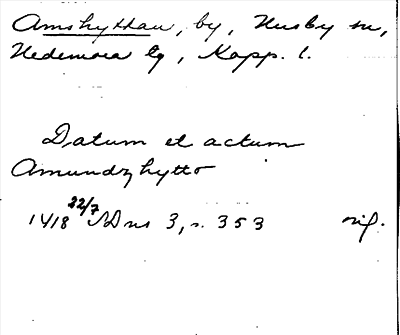 Amshyttan, by, Husby sn,
Hedemora tg, Kopp. l.
Datum et actum
Amundzhytto
1418 22/7 SDns 3, s. 353 orig.